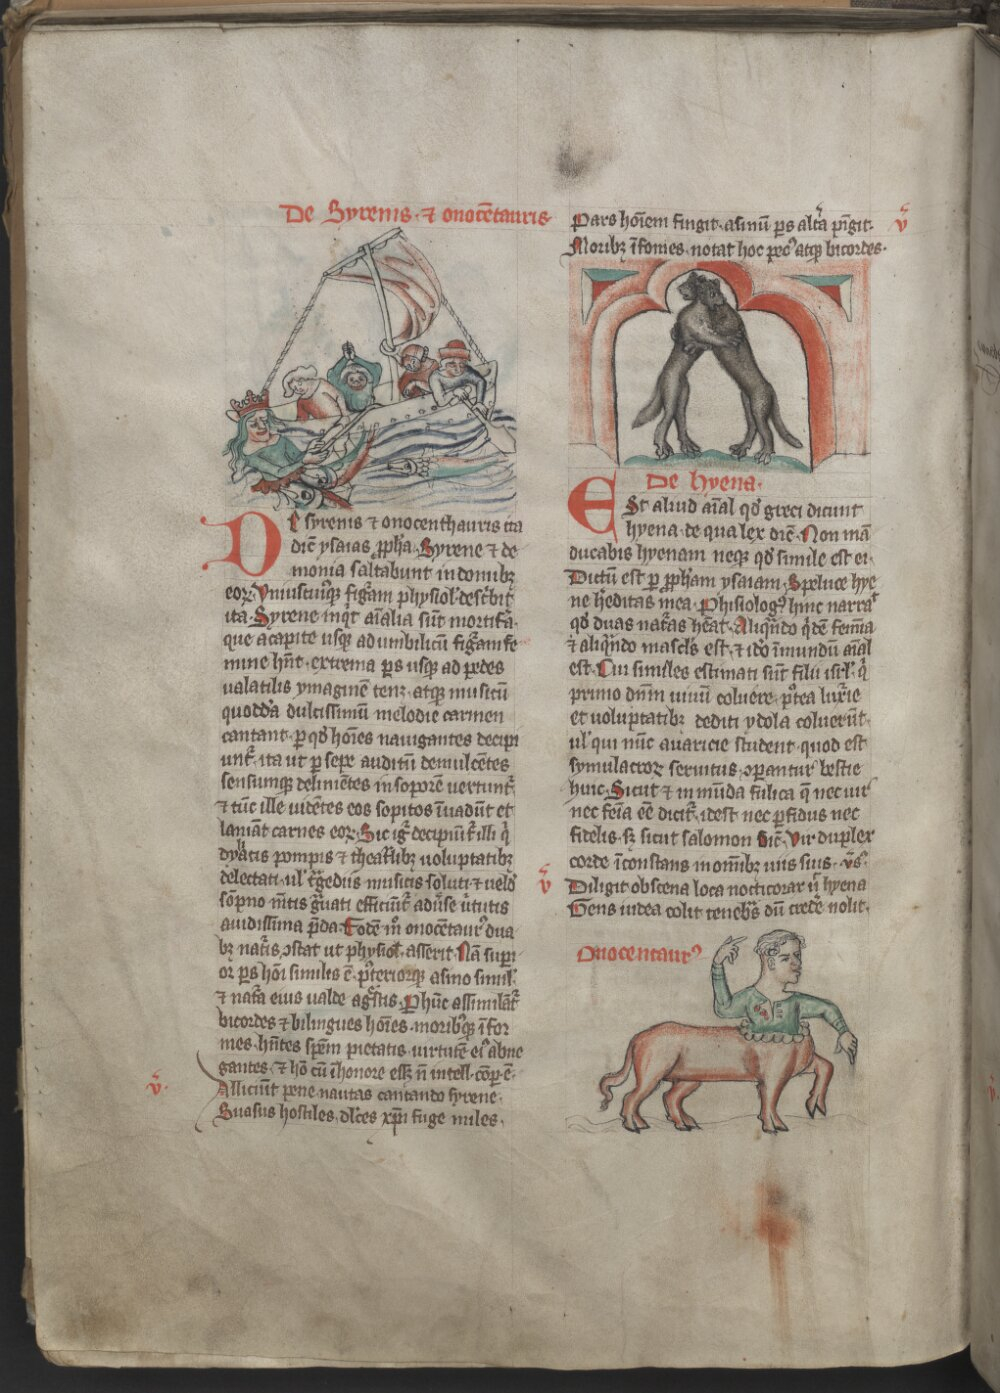 De Syrenis · ⁊ onocētauris
De syrenis ⁊ onocenthauris ita
dic̄ ysaias ꝓpħa · Syrene ⁊ de
monia saltabunt in domibꝫ
eoꝝ · Vniuscuiꝰqꝫ figᷓam physiol᷑ desc͛bit
ita · Syrene inqͥt aīalia sūt mortifᷓa ·
que a capite usqꝫ ad umbilicū figᷓam fe
mine hn̄t · extrema ꝑs usqꝫ ad pedes
ualatilis ymaginē tenꝫ · atqꝫ musicū
quodda dulcissimū melodie carmen
cantant · ꝑ qd̓ hōies nauigantes decipi
unt᷑ · ita ut ꝑ sepe auditū demulcētes
sensumqꝫ delinīētes in soporē uertunt᷑ ·
⁊ tūc ille uidētes eos sopitos īuadūt et
laniāt carnes eoꝝ · Sic igᷓ decipiūt᷑ illi qͥ
dyabᷓtis pompis ⁊ theatᷓlibꝫ uoluptatibꝫ
delectati · ul᷑ tᷓgediis musicis soluti · ⁊ uelᷣ
sōpno mētis gᷓuati efficiūt᷑ adu͛se u͛tutis
auidissima p̄da · Eodē mͦ onocētaurꝰ dua
bꝫ natᷓis ɔstat ut physiol᷑ · asserit · Nā supi
or ꝑs hōi similis ē · pͦterioꝝqꝫ asino simil᷑ ·
⁊ natᷓa eius ualde agᷓstis · Phūc assimilāt᷑
bicordes ⁊ bilingues hōies · moribꝰqꝫ īfor
mes · hn̄tes spēm pietatis · uirtutē eiꝰ abne
gantes · ⁊ hō cū ī honore eēt n̄ intell · cōp̄ · ē ·
v̄ · Alliciūt pene nautas cantando syrene ·
Suasus hostiles · dl͛ces xp̄i fuge miles ·
Pars hōiem fingit · asinū ꝑs altᷓa pīgit · v̄
Moribꝫ īfomes · notat hoc pecꝰ atqꝫ bicordes ·
De hyena ·
Est aliud aīal qd̓ greci dicunt
hyena · de qua lex dic̄ · Non mā
ducabis hyenam neqꝫ qd̓ simile est ei ·
Dictū est ꝑ ꝓpħam ysaiam · Spelūce hye
ne h͛editas mea · Phisiologꝰ hinc narra᷑
qd̓ duas natᷓas hēat · Aliqn̄do qͥdē femīa
⁊ aliqn̄do masclꝰs est · ⁊ idͦ īmundū aīal
est · Cui similes estimati sūt filii isrl᷑ · qͥ
primo dn̄m uiuū coluere · pͦtea luxᷓie
et uoluptatibꝫ dediti ydola coluerūt ·
ul᷑ qui nūc auaricie student · quod est
symulacroꝝ seruitus ɔꝑantur bestie
huic · Sicut ⁊ in mūda fulica q̄ nec uir
nec fēīa eē dicit᷑ · idest nec ꝑfidus nec
fidelis · sꝫ sicut salomon dic̄ · Vir duplex
corde īconstans in om̄ibꝫ uiis suis · v̄s ·
v̄ Diligit obscena loca nocticorax ū hyena
Gens iudea colit tenebᷓs dū credᷓe nolit ·
Onocentaurꝰ